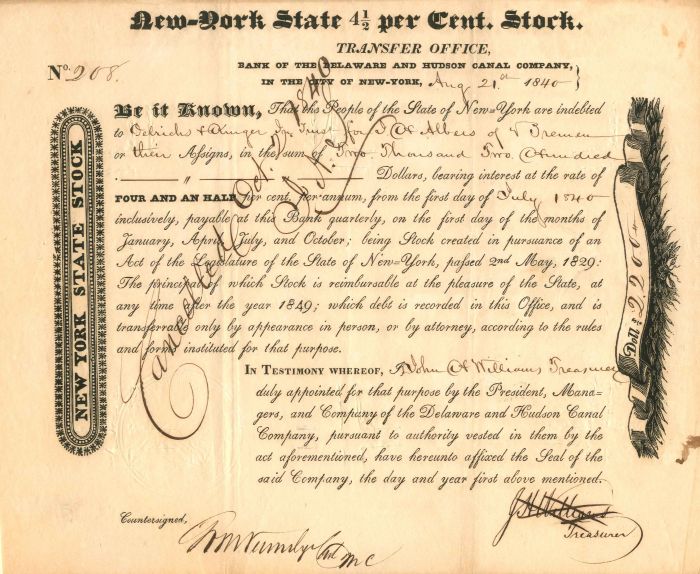 New=York State 4½ per Cent. Stock.
TRANSFER OFFICE,
BANK OF THE DELAWARE AND HUDSON CANAL COMPANY,
No. 208.
IN THE CITY OF NEW-YORK, Aug 21st 1840
Be it Known, That the People of the State of New=York are indebted
to Oelrichs & Kruger In Trust for J H Albers of Bremen
or their Assigns, in the sum Two Thousand Two Hundred
" Dollars, bearing interest at the rate of
FOUR AND AN HALF per cent. per annum, from the first day of July 1840
inclusively, payable at this Bank quarterly, on the first day of the months of
January, April, July, and October; being Stock created in pursuance of an
Act of the Legislature of the State of New=York, passed 2nd May, 1829:
The principal of which Stock is reimbursable at the pleasure of the State, at
any time after the year 1849; which debt is recorded in this Office, and is
transferrable only by appearance in person, or by attorney, according to the rules
and forms instituted for that purpose.
In Testimony whereof, I John H Williams Treasurer
duly appointed for that purpose by the President, Mana=
gers, and Company of the Delaware and Hudson Canal
Company, pursuant to authority vested in them by the
act aforementioned, have hereunto affixed the Seal of the
said Company, the day and year first above mentioned.
Countersigned,
J H Williams
Treasurer
NEW YORK STATE STOCK
Dolls. 2200
Cancelled Oct. 1840